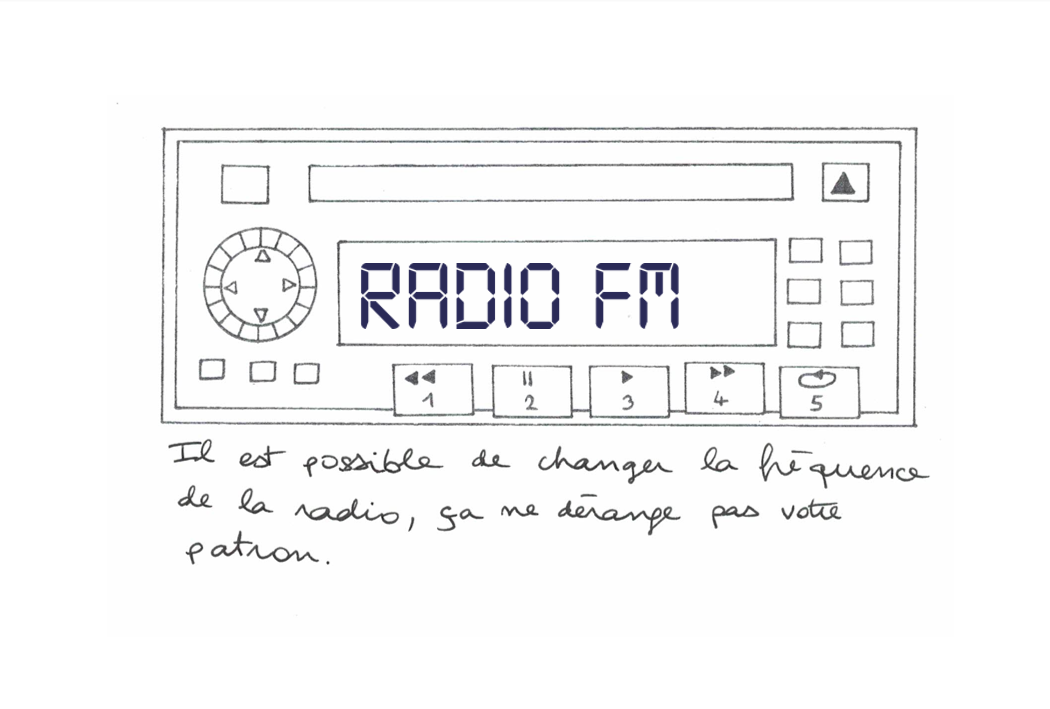 RADIO FM
1 2 3 4 5
Il est possible de changer la fréquence
de la radio, ça ne dérange pas votre
patron.